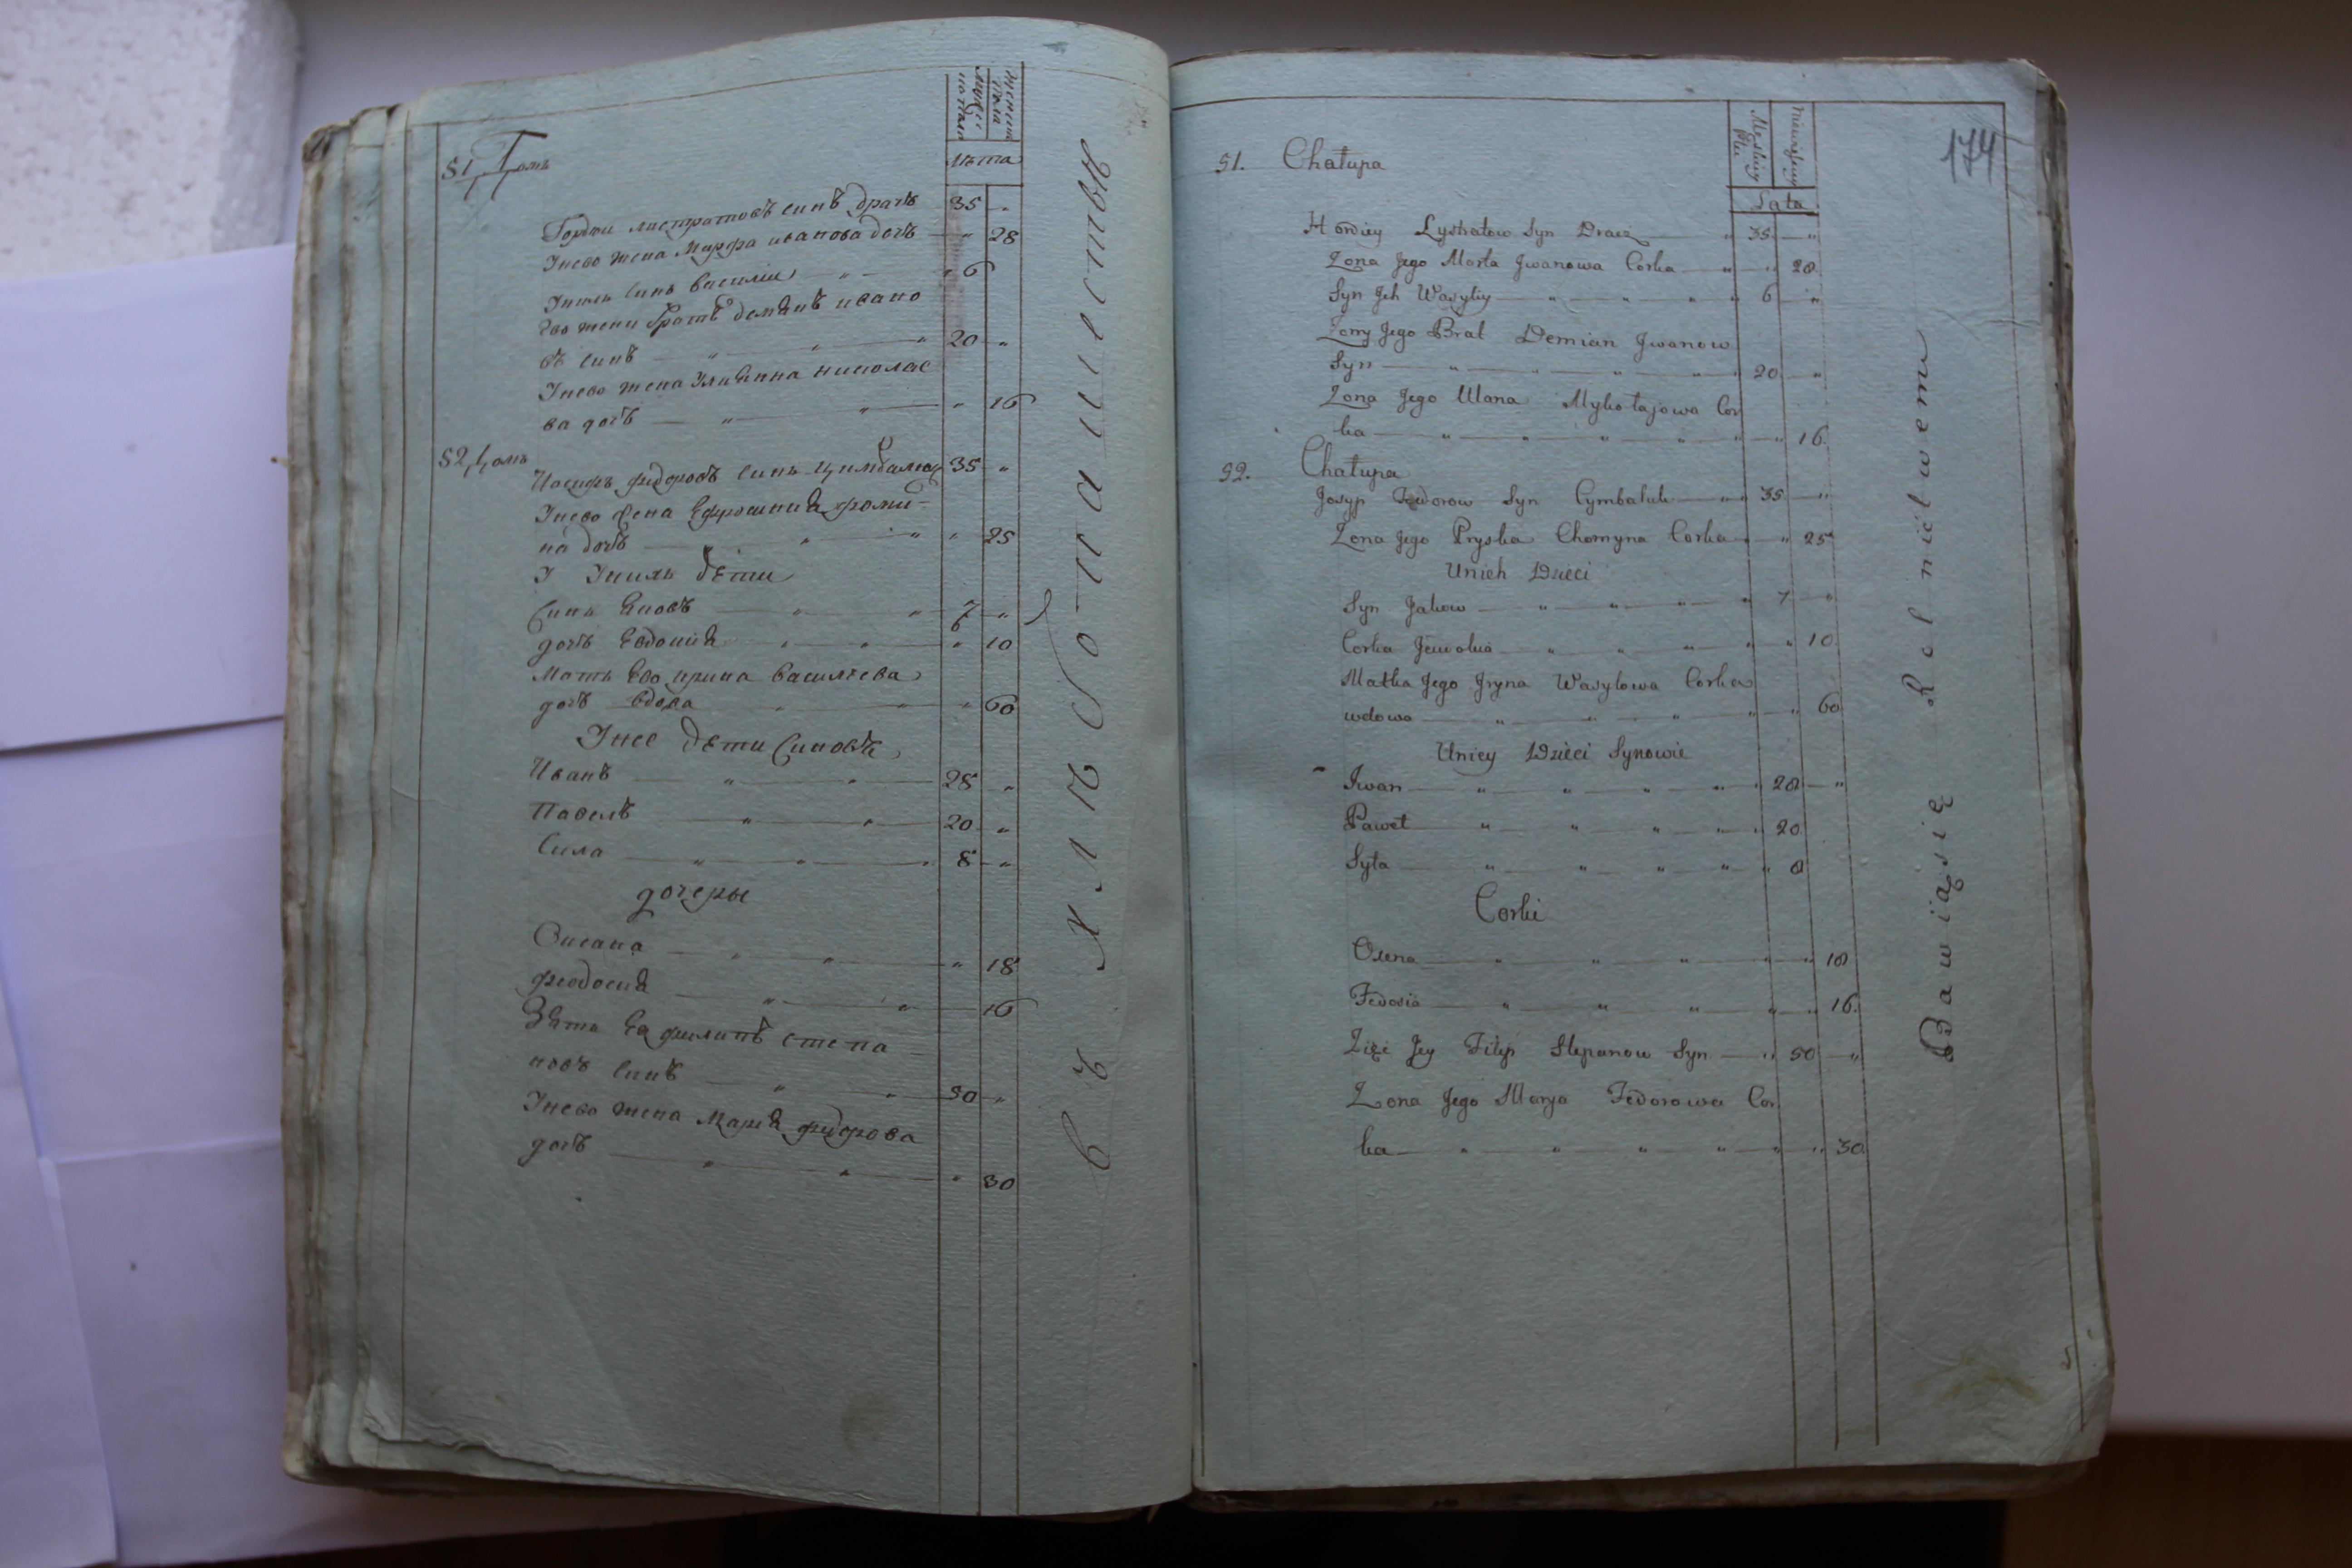 51, Домъ
мужес
ка пола
женска
пола
Лѣта
Гордѣи листратовъ синъ драчъ 35 "
Унево жена Марфа иванова дочъ " 28
Унихъ синъ василии " 6
Ево жени братъ демянъ ивано
въ синъ " " " 20 "
Унево жена Улияна николае
ва дочъ " " " 16
52, Домъ
Иосифъ федоровъ синъ цимбалюкъ 35 "
Унево жена Ефросиния хоми-
на дочъ " " " 25
У Унихъ дѣти
Синъ Яковъ " " 7 "
дочъ Евдокия " " " 10
Мать Ево ирина василиева
дочъ вдова " " " 60
Унее дѣти Синовѣ
Иванъ " " 28 "
Павелъ " " 20 "
Сила " " " 8 "
дочеры
Оксана " " " 18
феодосия " " 16
Зять Ея филипъ степа-
новъ синъ " " 50 "
Унево жена Мария федорова
дочъ " " " 30
въ хлѣбопашествѣ
174
Męskiey
Płci
niewieściey
Lata
51. Chałupa
Hordiey Lystratow Syn Dracz " 35 "
Zona Jego Marta Jwanowa Corka " " 28
Syn Jch Wasyliy " " " " 6 "
Zony Jego Brat Demian Jwanow
Syn " " " " " 20 "
Zona Jego Ulana Mykołajowa Cor
ka " " " " " " 16.
52. Chałupa
Josyp Fedorow Syn Cymbaluk " " 35 "
Zona Jego Pryska Chomyna Corka " " 25
Unich Dzieci
Syn Jakow " " " " 7 "
Corka Jewdokia " " " " " 10
Matka Jego Jryna Wasylowa Corka
wdowa " " " " " 60
Uniey Dzieci Synowie
Jwan " " " " " 28 "
Paweł " " " " " 20
Syła " " " " " 8
Corki
Oxena " " " " " 18
Fedosia " " " " " 16.
Zięć Jey Filip Stepanow Syn " 50 "
Zona Jego Marya Fedorowa Cor
ka " " " " " " 30
Bawią się Rolnictwem